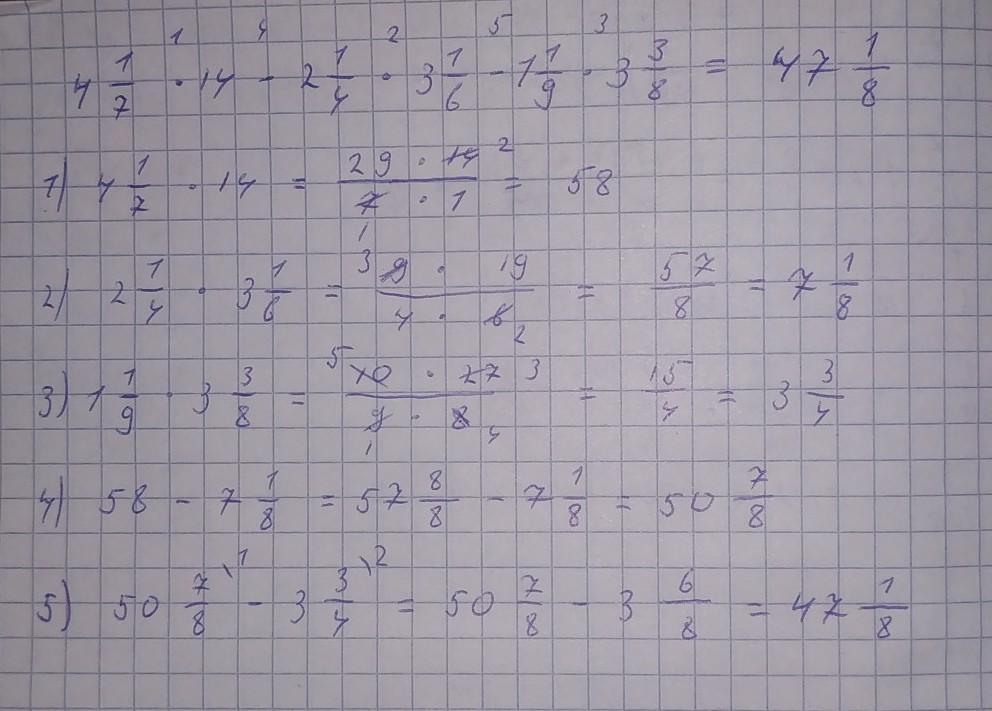 1 4 2 5 3
4 1/7 · 14 - 2 1/4 · 3 1/6 - 1 1/9 · 3 3/8 = 47 1/8
1) 4 1/7 · 14 = 29 · 14 2 / 7 1 · 1 = 58
2) 2 1/4 · 3 1/6 = 3 9 · 19 / 4 · 6 2 = 57/8 = 7 1/8
3) 1 1/9 · 3 3/8 = 5 10 · 27 3 / 9 1 · 8 4 = 15/4 = 3 3/4
4) 58 - 7 1/8 = 57 8/8 - 7 1/8 = 50 7/8
5) 50 7/8 \1 - 3 3/4 \2 = 50 7/8 - 3 6/8 = 47 1/8